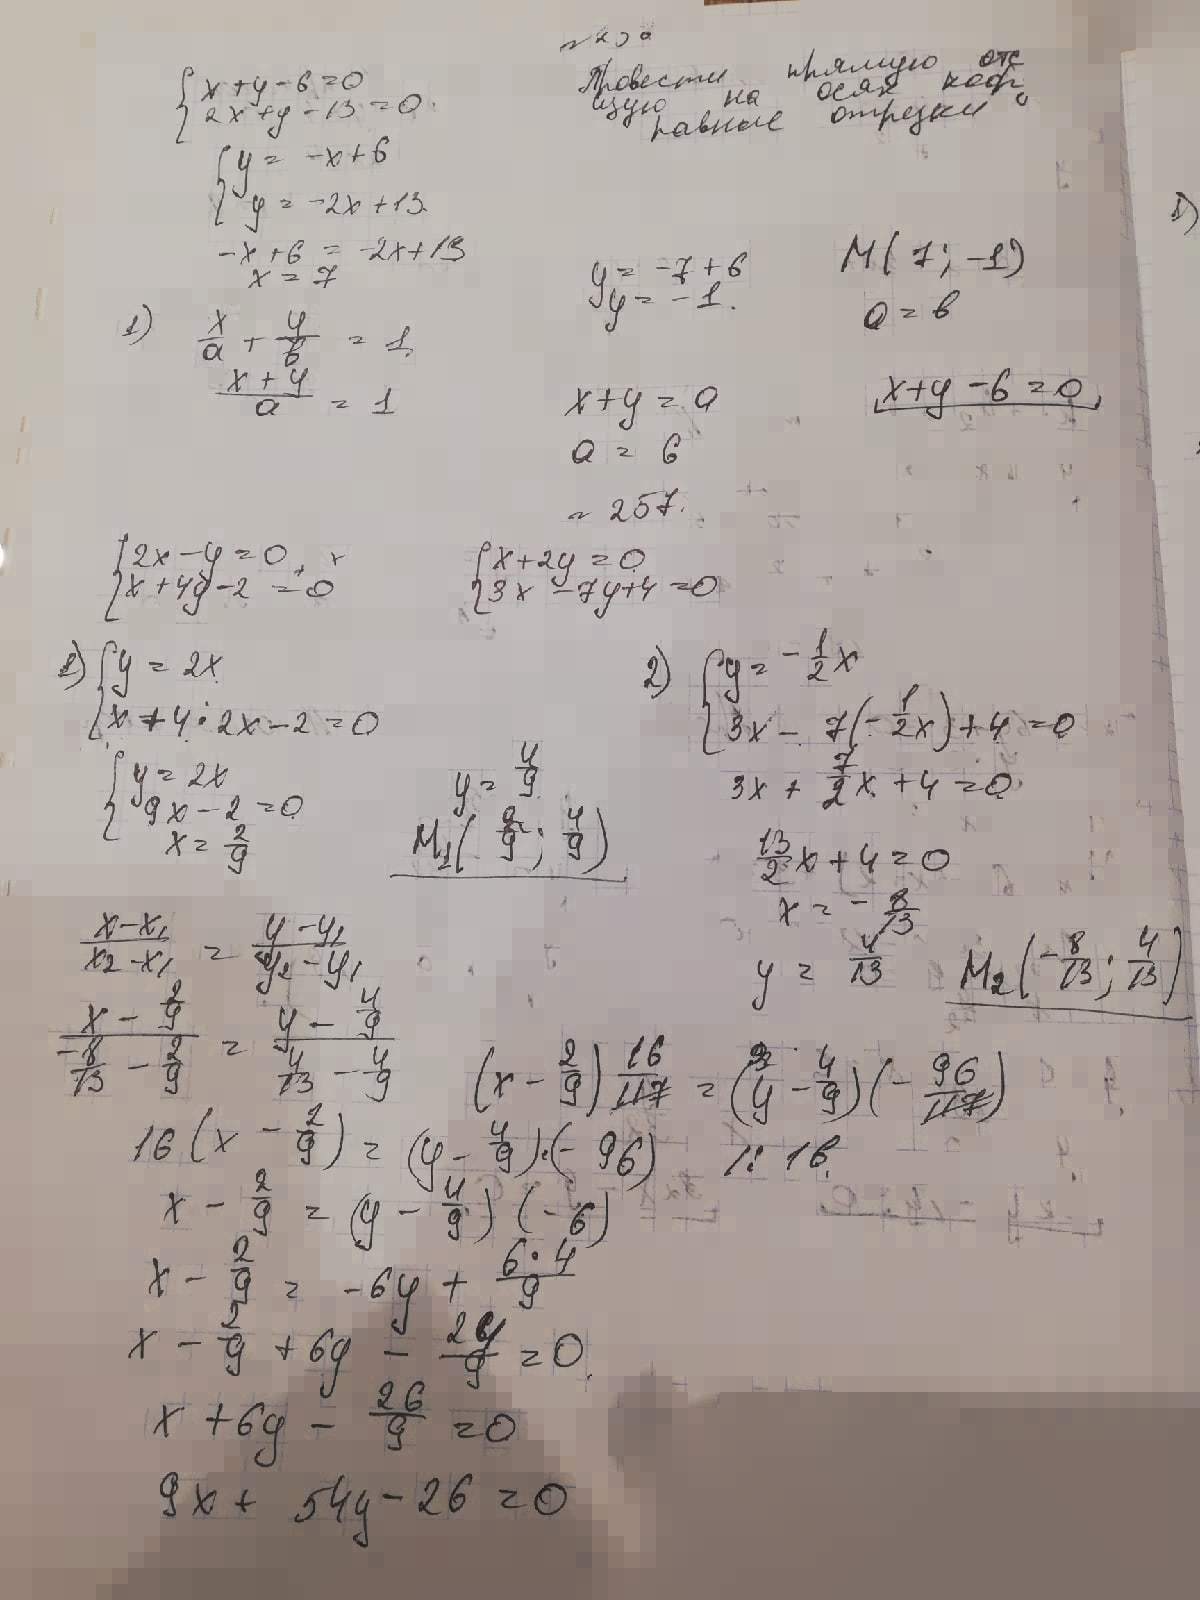 Провести прямую отс
щую на осях коор
равные отрезки
{x+y-6=0
2x+y-13=0.
{y = -x+6
y = -2x+13
-x+6 = -2x+13
x = 7
y = -7+6
y = -1.
M(7; -1)
a = b
1) x/a + y/b = 1
(x+y)/a = 1
x+y = a
a = 6
x+y-6=0
257.
{2x-y=0
x+4y-2=0
{x+2y=0
3x-7y+4=0
1) {y = 2x
x+4·2x-2=0
{y = 2x
9x-2=0
x = 2/9
y = 4/9
M₁(2/9; 4/9)
2) {y = -1/2x
3x-7(-1/2x)+4=0
3x+7/2x+4=0
13/2x+4=0
x = -8/13
y = 4/13
M₂(-8/13; 4/13)
(x-x₁)/(x₂-x₁) = (y-y₁)/(y₂-y₁)
(x-2/9)/(-8/13-2/9) = (y-4/9)/(4/13-4/9)
(x-2/9)16/117 = (y-4/9)(-96/117)
16(x-2/9) = (y-4/9)·(-96) /:16.
x-2/9 = (y-4/9)(-6)
x-2/9 = -6y+6·4/9
x-2/9+6y-24/9=0
x+6y-26/9=0
9x+54y-26=0